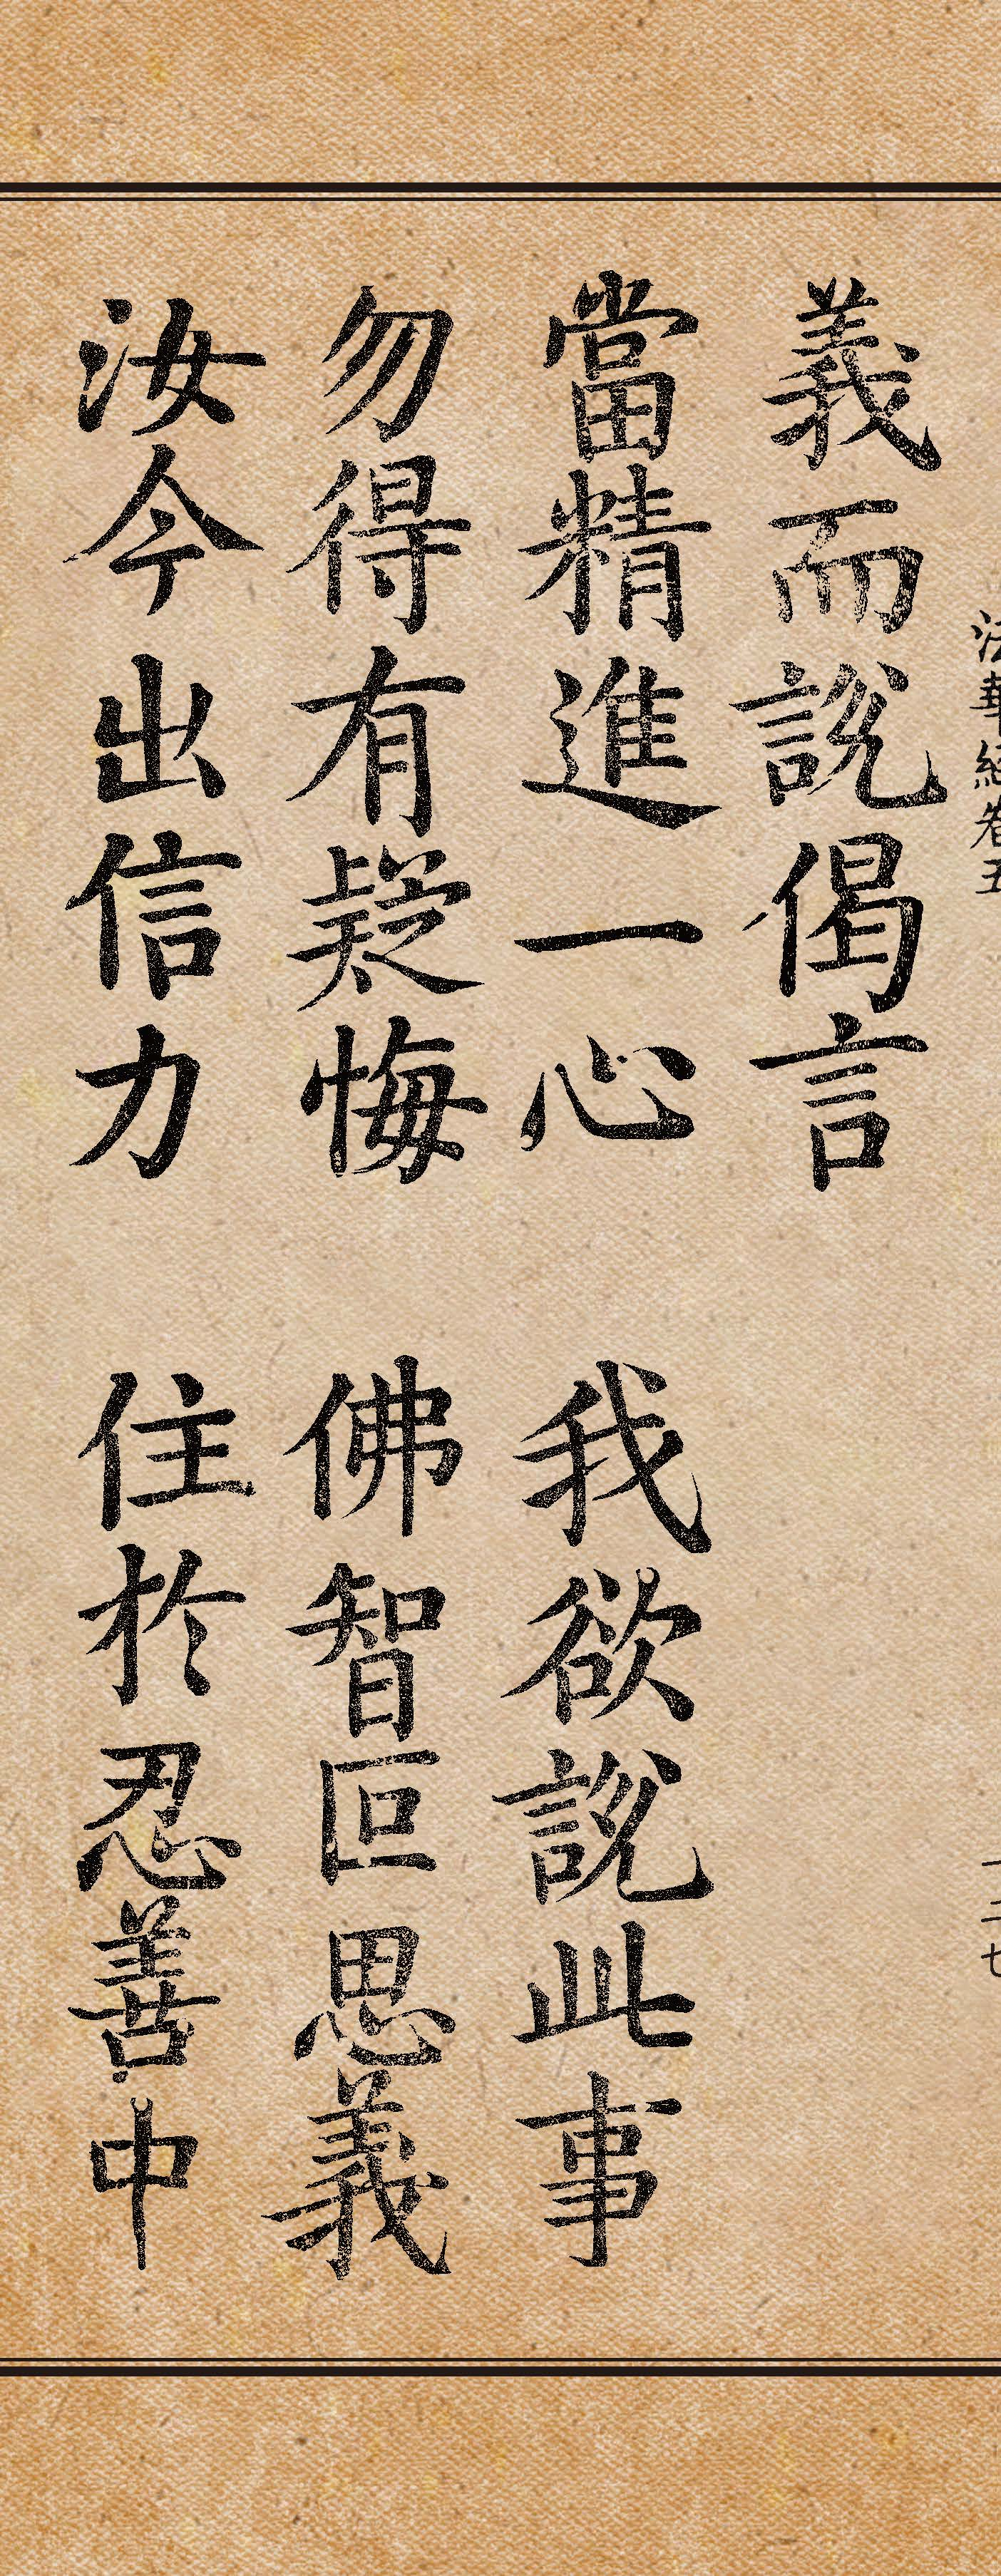 法華經卷五
一二七
義而說偈言
當精進一心　我欲說此事
勿得有疑悔　佛智叵思義
汝今出信力　住於忍善中